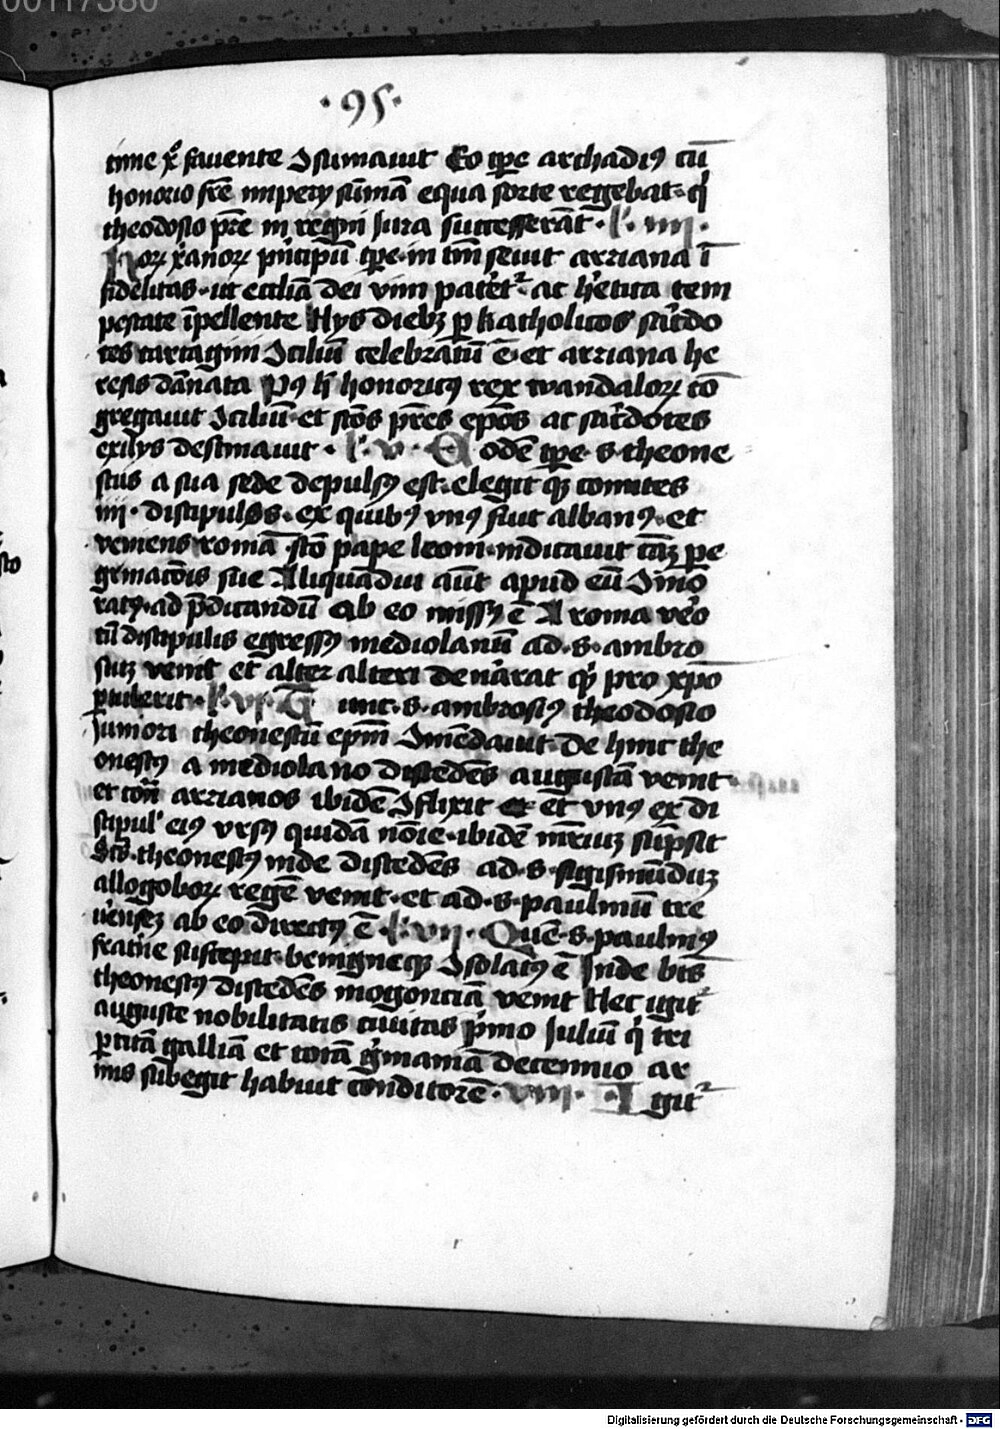 ·95·
time xo fauente Ɔsumauit Eo tp̄e archadiꝰ cū
honorio fr̄e impery sūmā equa sorte regebat· qͥ
theodosio pr̄e in regni Jura successerāt· l' iiii·
Horꝝ xānorꝝ pͥncipū tp̄e· in tm̄ seuit arriana ī
fidelitas· ut eccliā dei vim patēr͛ ac hͤetica tem
pestate īpellente Hys diebꝫ p katholicos sac͛do
tes cartagini Ɔciliū celebrātū ē· et arriana he
resis dānata Pꝰ h̄ honoricꝰ rex wandalorꝝ cō
gregauit Ɔciliū· et sc̄os pr̄es ep̄os ac sac͛dotes
exilys destinauit· l' v· Eodē tp̄e· s· theone
stus a sua sede depulsꝰ est· elegit qꝫ comites
iiii· discipulos· ex quibꝰ vnꝰ fuit albanꝰ· et
veniens romā sc̄o pape leoni· indicauit cāꝫ pe
g͛nacōis sue Aliquādiu aūt apud eū Ɔmo
ratꝰ· ad p̄dicandū ab eo missꝰ ē A roma v͛o
cū discipulis egressꝰ mediolanū ad· s· ambro
siuꝫ venit et alter alteri denārat qͥ pro xp̄o
ptulerit· l' vi· Tunc· s· ambrosiꝰ theodosio
Juniori theonestū ep̄m Ɔmēdauit· De hinc the
onestꝰ a mediolano discedēs augustā venit·
et cōn arrianos ibidē Ɔflixit et· et vnꝰ ex di
scipul' eiꝰ vrsꝰ quidā nōie· ibidē mr̄iuꝫ susp̄sit
Scs̄· theonestꝰ inde discedēs ad· s· sigismūduꝫ
allogoborꝝ regē venit· et ad· s· paulinū tre
u͛ensēꝫ ab eo directꝰ ē· l' vii· Quē· s· paulinꝰ
frat͛ne suscepit· benigneqꝫ Ɔsolatꝰ ē Inde bt̄s
theonestꝰ discedēs mogonciā venit Hec igit͛
auguste nobilitatis ciuitas pͥmo Juliū qͥ tri
ptitā galliā et totā g͛maniā decennio ar
mis subegit habuit conditorē· viii· Igit͛
Digitalisierung gefördert durch die Deutsche Forschungsgemeinschaft · DFG